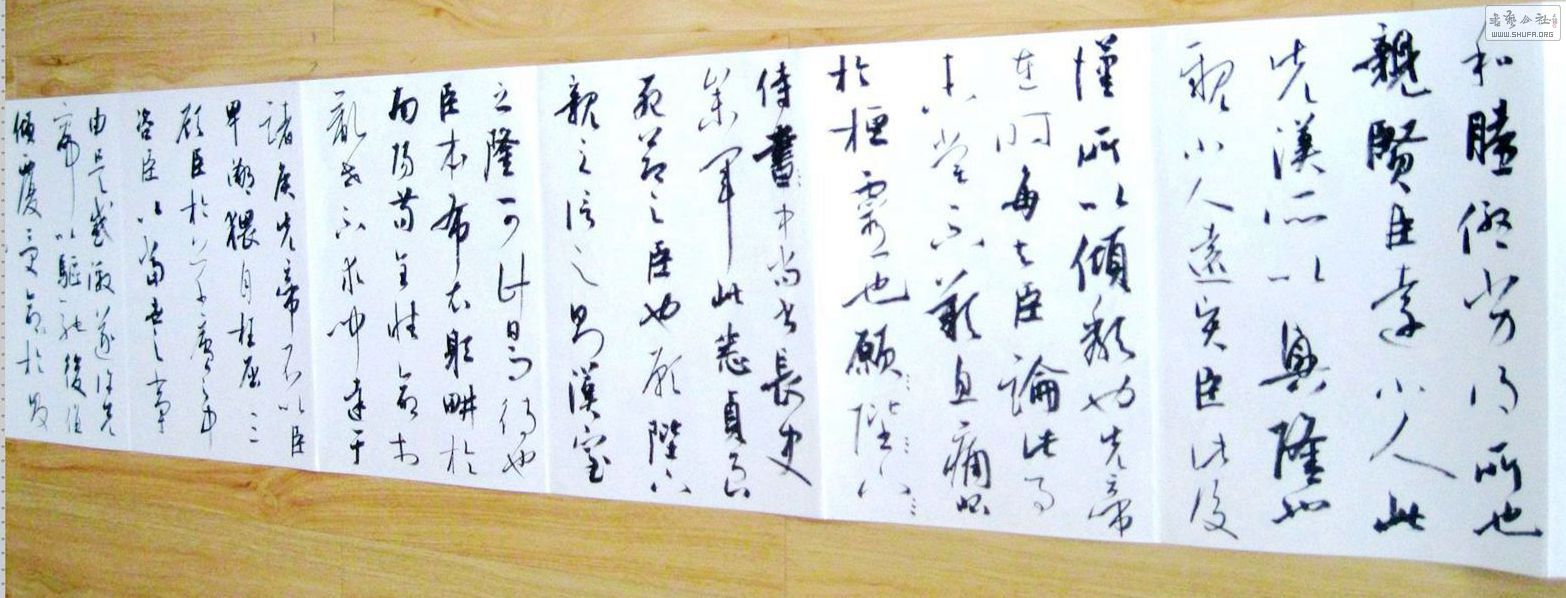 和睦優劣得所也
親賢臣遠小人此
先漢所以興隆也
親小人遠賢臣此後
漢所以傾頹也先帝
在時每與臣論此事
未嘗不歎息痛恨
於桓靈也願陛下
侍書中尚書長史
參軍此悉貞良
死節之臣也願陛下
親之信之則漢室
之隆可計日而待也
臣本布衣躬耕於
南陽苟全性命於
亂世不求聞達于
諸侯先帝不以臣
卑鄙猥自枉屈三
顧臣於草廬之中
咨臣以當世之事
由是感激遂許先
帝以驅馳後值
傾覆受命於敗
書藝公社
WWW.SHUFA.ORG